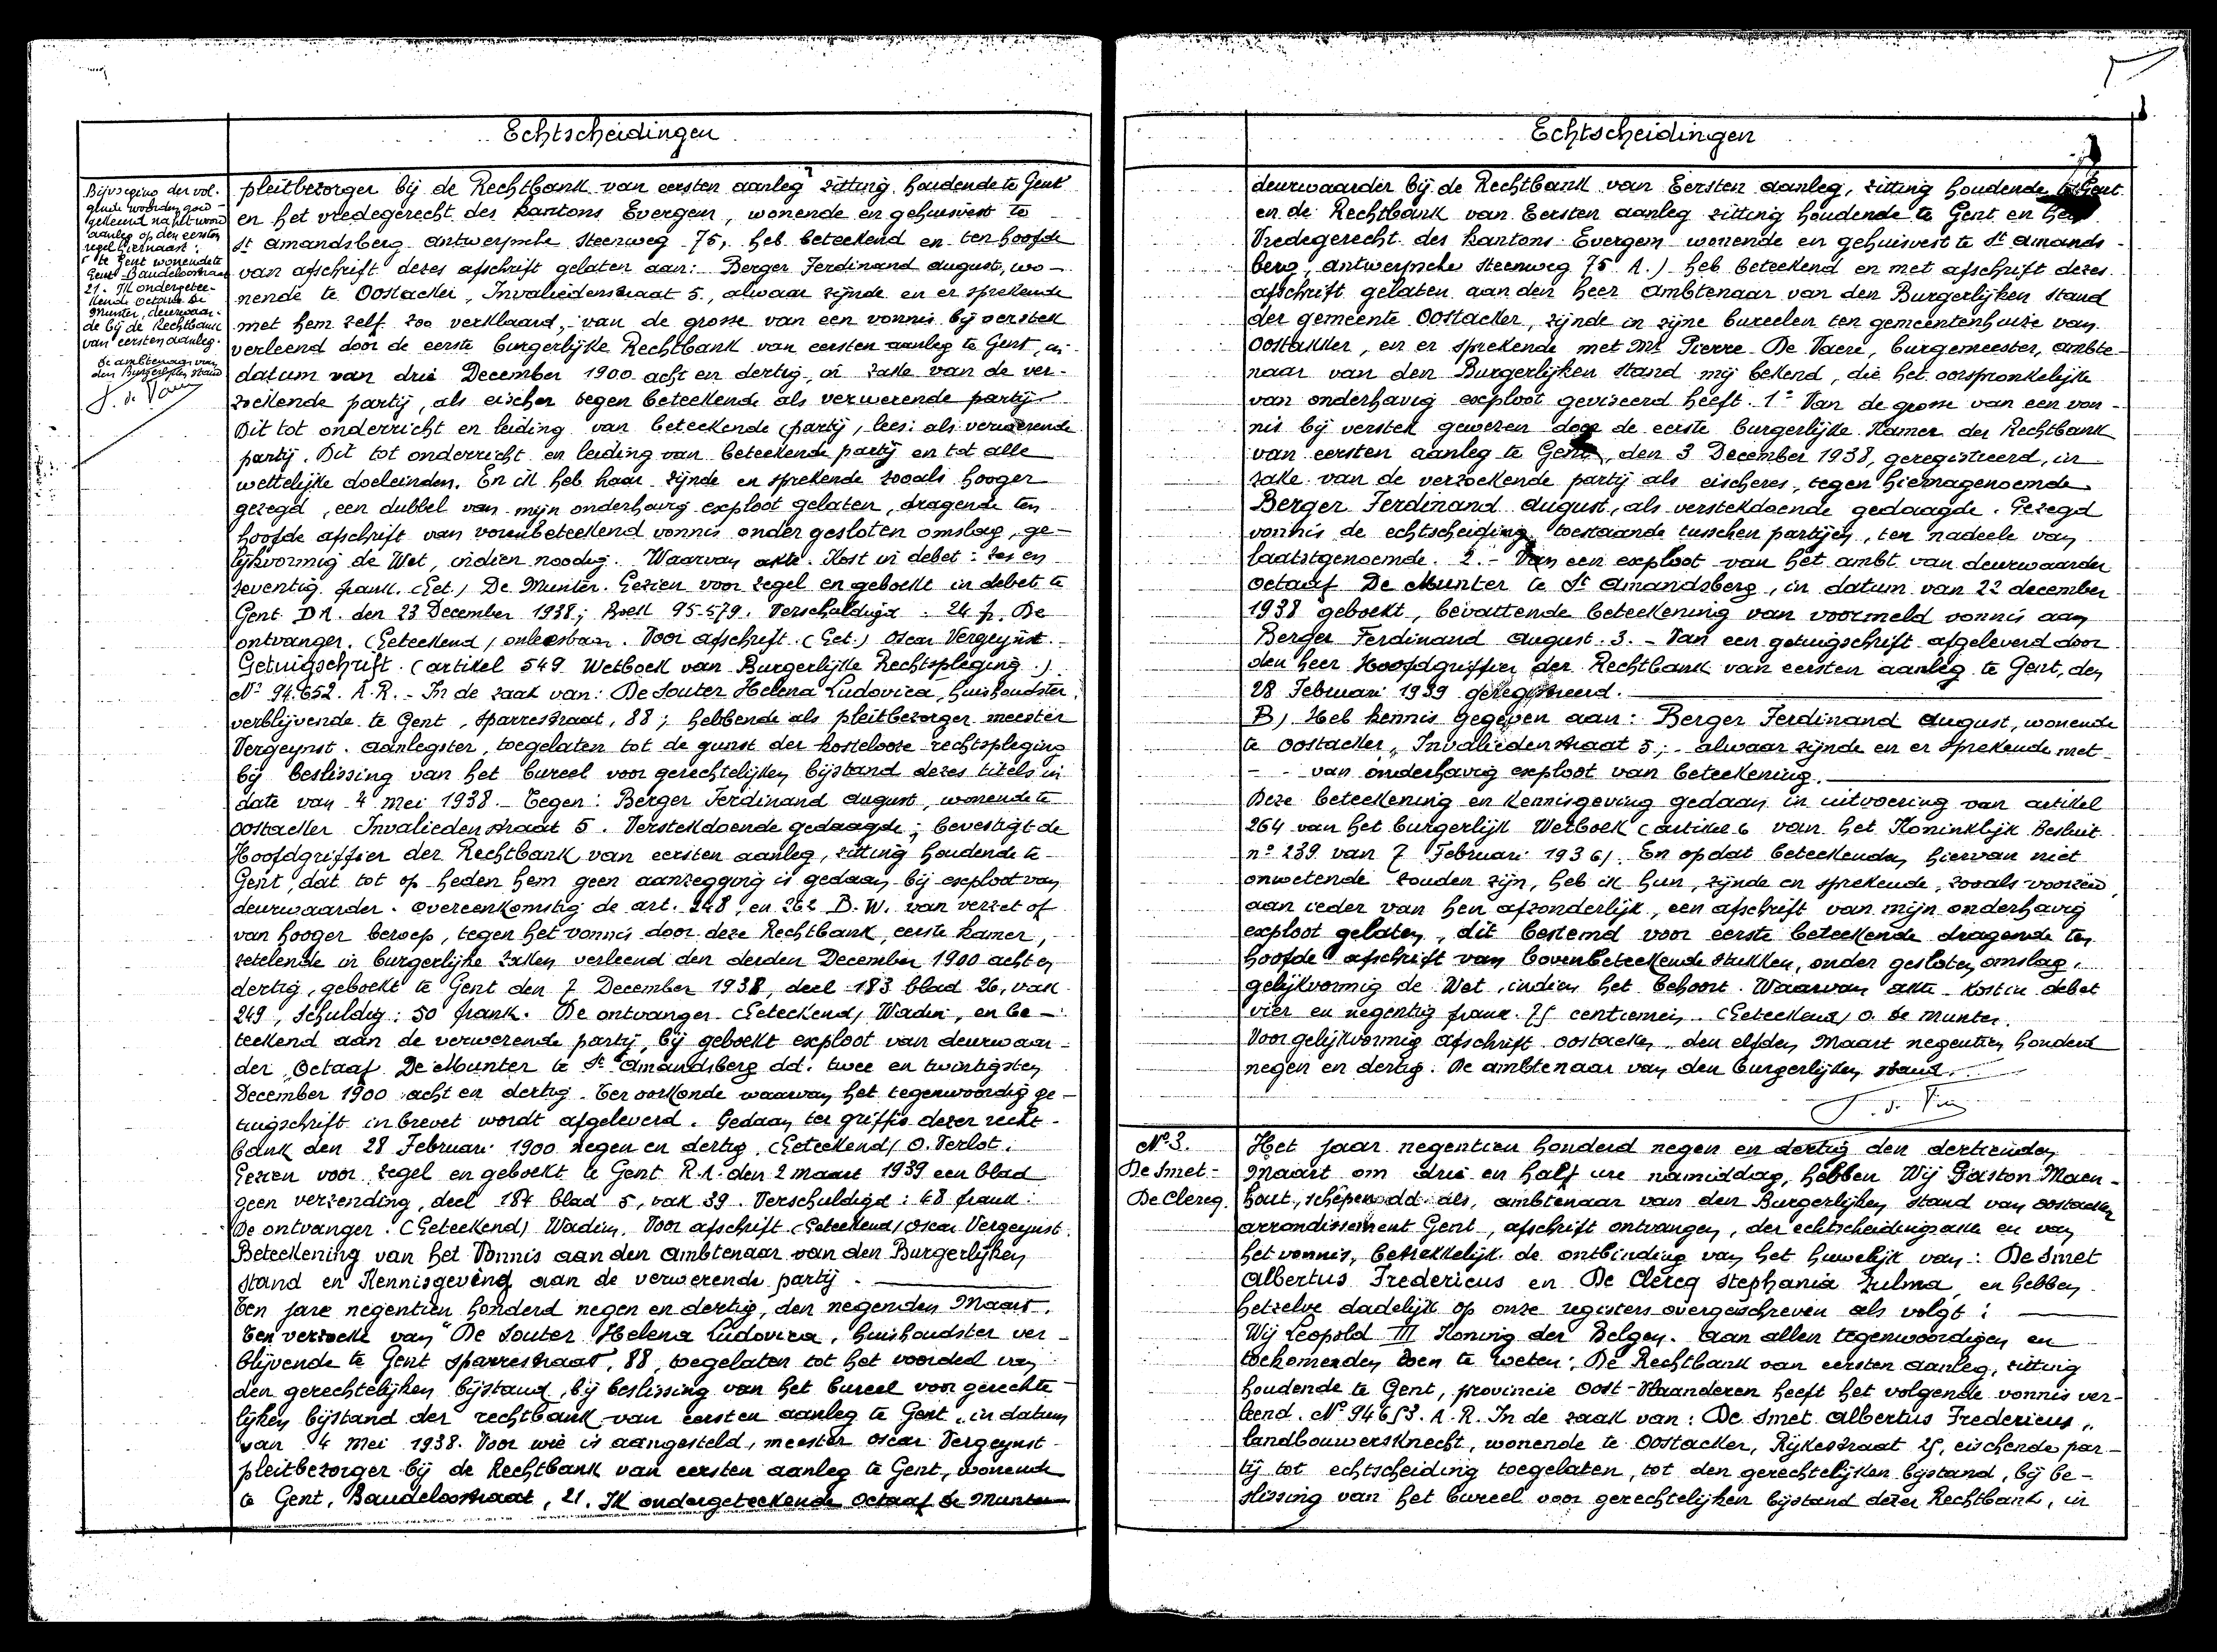 Echtscheidingen
Bijvoeging der vol-
gende woorden goed-
gekeurd na het woord
aanleg op den eersten
regel hiernaast:
te Gent wonende te
Gent Baudeloostraat
21. Ik ondergetee-
kende Octave De
Munter, deurwaar-
de bij de Rechtbank
van eersten aanleg.
De ambtenaar van
den Burgerlijken stand
pleitbezorger bij de Rechtbank van eersten aanleg zitting houdende te Gent
en het vredegerecht des kantons Evergem, wonende en gehuisvest te
St Amandsberg Antwerpsche Steenweg 75, heb beteekend en ten hoofde
van afschrift dezes afschrift gelaten aan: Berger Ferdinand August, wo-
nende te Oostacker, Invaliedenstraat 5, alwaar zijnde en er sprekende
met hem zelf zoo verklaard, van de grosse van een vonnis bij verstek
verleend door de eerste burgerlijke Rechtbank van eersten aanleg te Gent, in
datum van drie December 1900 acht en dertig, in zake van de ver-
zoekende partij, als eischer tegen beteekende als verwerende partij
Dit tot onderricht en leiding van beteekende (partij, lees: als verwerende
partij. Dit tot onderricht en leiding van beteekende partij en tot alle
wettelijke doeleinden. En ik heb haar zijnde en sprekende zooals hooger
gezegd, een dubbel van mijn onderhavig exploot gelaten, dragende ten
hoofde afschrift van vorenbeteekend vonnis onder gesloten omslag, ge-
lijkvormig de Wet, indien noodig. Waarvan akte. Kost in debet: zes en
zeventig frank. (Get.) De Munter. Gezien voor zegel en geboekt in debet te
Gent D.A. den 23 December 1938; Boek 95-579. Verschuldigd: 24 f. De
ontvanger. (Geteekend) onleesbaar. Voor afschrift. (Get.) Oscar Vergeynst.
Getuigschrift. (artikel 549 Wetboek van Burgerlijke Rechtspleging.)
No 94.652. A.R. - In de zaak van: De Souter Helena Ludovica, huishoudster,
verblijvende te Gent, Sparrestraat, 88; hebbende als pleitbezorger meester
Vergeynst. Aanlegster, toegelaten tot de gunst der kostelooze rechtspleging
bij beslissing van het bureel voor gerechtelijken bijstand dezes titels in
date van 4 Mei 1938. - Tegen: Berger Ferdinand August, wonende te
Oostacker Invaliedenstraat 5. Verstekdoende gedaagde; bevestigt de
Hoofdgriffier der Rechtbank van eersten aanleg, zitting houdende te
Gent, dat tot op heden hem geen aanzegging is gedaan bij exploot van
deurwaarder. Overeenkomstig de art. 248, en 262 B.W. van verzet of
van hooger beroep, tegen het vonnis door deze Rechtbank, eerste kamer,
zetelende in burgerlijke zaken verleend den derden December 1900 acht en
dertig, geboekt te Gent den 7 December 1938, deel 183 blad 26, vak
249, Schuldig: 50 frank. De ontvanger. (Geteekend) Wadin, en be-
teekend aan de verwerende partij, bij geboekt exploot van deurwaar-
der Octaaf De Munter te St Amandsberg dd. twee en twintigsten
December 1900 acht en dertig. Ter oorkonde waarvan het tegenwoordig ge-
tuigschrift in brevet wordt afgeleverd. Gedaan ter griffie dezer recht-
bank den 28 Februari 1900 negen en dertig. (Geteekend) O. Verlot.
Gezien voor zegel en geboekt te Gent R.A. den 2 maart 1939 een blad
geen verzending, deel 187 blad 5, vak 39. Verschuldigd: 48 frank:
De ontvanger. (Geteekend) Wadin. Voor afschrift (Geteekend) Oscar Vergeynst.
Beteekening van het Vonnis aan den Ambtenaar van den Burgerlijken
stand en Kennisgeving aan de verwerende partij.
Ten jare negentien honderd negen en dertig, den negenden Maart.
Ten verzoeke van De Souter Helena Ludovica, huishoudster ver-
blijvende te Gent Sparrestraat, 88, toegelaten tot het voordeel van
den gerechtelijken bijstand, bij beslissing van het bureel voor gerechte
lijken bijstand der rechtbank van eersten aanleg te Gent, in datum
van 4 Mei 1938. Voor wie is aangesteld, meester Oscar Vergeynst
pleitbezorger bij de Rechtbank van eersten aanleg te Gent, wonende
te Gent, Baudeloostraat, 21. Ik ondergeteekende Octaaf De Munter
Echtscheidingen
deurwaarder bij de Rechtbank van Eersten aanleg, zitting houdende te Gent
en de Rechtbank van Eersten aanleg zitting houdende te Gent en het
Vredegerecht des kantons Evergem wonende en gehuisvest te St Amands-
berg, Antwerpsche Steenweg 75 A.) heb beteekend en met afschrift dezes
afschrift gelaten aan den heer Ambtenaar van den Burgerlijken Stand
der gemeente Oostacker, zijnde in zijne bureelen ten gemeentenhuize van
Oostakker, en er sprekende met Mr Pierre De Vaere, burgemeester, ambte-
naar van den Burgerlijken Stand mij bekend, die het oorspronkelijke
van onderhavig exploot geviseerd heeft. 1= Van de grosse van een von-
nis bij verstek gewezen door de eerste burgerlijke Kamer der Rechtbank
van eersten aanleg te Gent, den 3 December 1938, geregistreerd, in
zake van de verzoekende partij als eischeres, tegen hiernagenoemde
Berger Ferdinand August, als verstekdoende gedaagde. Gezegd
vonnis de echtscheiding toestaande tusschen partijen, ten nadeele van
laatstgenoemde. 2.- Van een exploot van het ambt van deurwaarder
Octaaf De Munter te St Amandsberg, in datum van 22 december
1938 geboekt, bevattende beteekening van voormeld vonnis aan
Berger Ferdinand August. 3.- Van een getuigschrift afgeleverd door
den heer Hoofdgriffier der Rechtbank van eersten aanleg te Gent, den
28 Februari 1939 geregistreerd.
B) Heb kennis gegeven aan: Berger Ferdinand August, wonende
te Oostacker, Invaliedenstraat 5; - alwaar zijnde en er sprekende met
- - van onderhavig exploot van beteekening.
Deze beteekening en kennisgeving gedaan in uitvoering van artikel
264 van het burgerlijk Wetboek (artikel 6 van het Koninklijk Besluit
no 239 van 7 Februari 1936). En opdat beteekenden hiervan niet
onwetende zouden zijn, heb ik hun, zijnde en sprekende, zooals voorzeid,
aan ieder van hen afzonderlijk, een afschrift van mijn onderhavig
exploot gelaten, dit bestemd voor eerste beteekende dragende ten
hoofde afschrift van bovenbeteekende stukken, onder gesloten omslag,
gelijkvormig de Wet, indien het behoort. Waarvan akte - Kost in debet
vier en negentig frank 75 centiemen. (Geteekend) O. De Munter.
Voor gelijkvormig afschrift Oostacker, den elfden Maart negentien honderd
negen en dertig. De ambtenaar van den burgerlijken stand.
No 3.
De Smet-
De Clercq.
Het jaar negentien honderd negen en dertig den dertienden
Maart om drie en half ure namiddag, hebben Wij Gaston Maen-
hout, schepen dd. als, ambtenaar van den Burgerlijken stand van Oostacker
arrondissement Gent, afschrift ontvangen, der echtscheidingsakte en van
het vonnis, betrekkelijk de ontbinding van het huwelijk van: De Smet
Albertus Fredericus en De Clercq Stephania Zulma, en hebben
hetzelve dadelijk op onze registers overgeschreven als volgt:
Wij Leopold III Koning der Belgen. Aan allen tegenwoordigen en
toekomenden doen te weten: De Rechtbank van eersten aanleg, zitting
houdende te Gent, provincie Oost-Vlaanderen heeft het volgende vonnis ver-
leend. No 94653. A.R. In de zaak van: De Smet Albertus Fredericus,
landbouwersknecht, wonende te Oostacker, Rijkestraat 25, eischende par-
tij tot echtscheiding toegelaten, tot den gerechtelijken bijstand, bij be-
slissing van het bureel voor gerechtelijken bijstand dezer Rechtbank, in